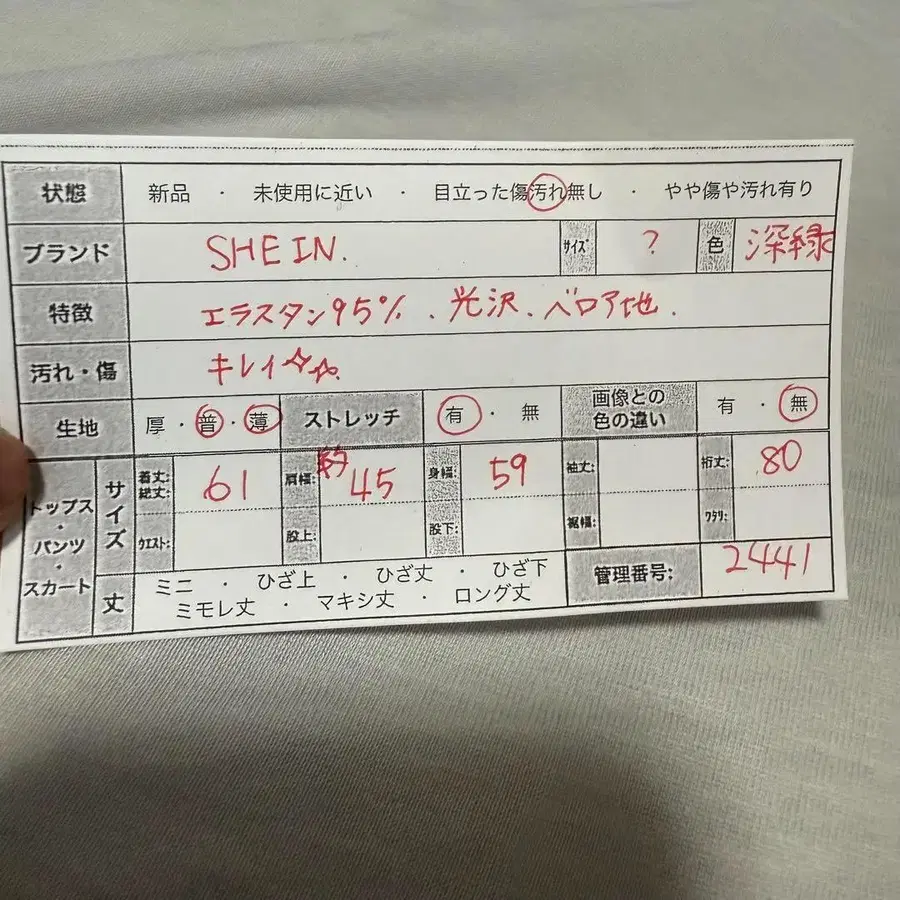 状態 新品 ・ 未使用に近い ・ 目立った傷汚れ無し ・ やや傷や汚れ有り
ブランド SHEIN. サイズ ? 色 深緑
特徴 エラスタン95%、光沢、ベロア地.
汚れ・傷 キレイ☆☆.
生地 厚・普・薄 ストレッチ 有・無 画像との色の違い 有・無
トップス・パンツ・スカート サイズ 着丈:総丈: 61 肩幅: 約45 身幅: 59 袖丈: 裄丈: 80
ウエスト: 股上: 股下: 裾幅: ワタリ:
丈 ミニ ・ ひざ上 ・ ひざ丈 ・ ひざ下 管理番号: 2441
ミモレ丈 ・ マキシ丈 ・ ロング丈